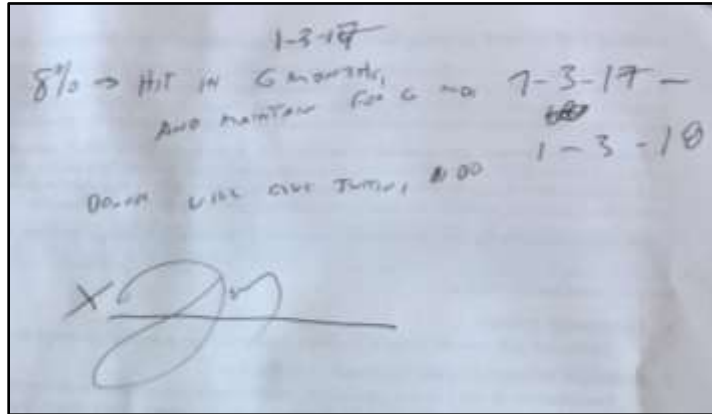 1-3-17
8% → HIT IN 6 MONTHS,
AND MAINTAIN FOR 6 MO. 7-3-17 –
1-3-18
WILL GIVE JUSTIN,
X